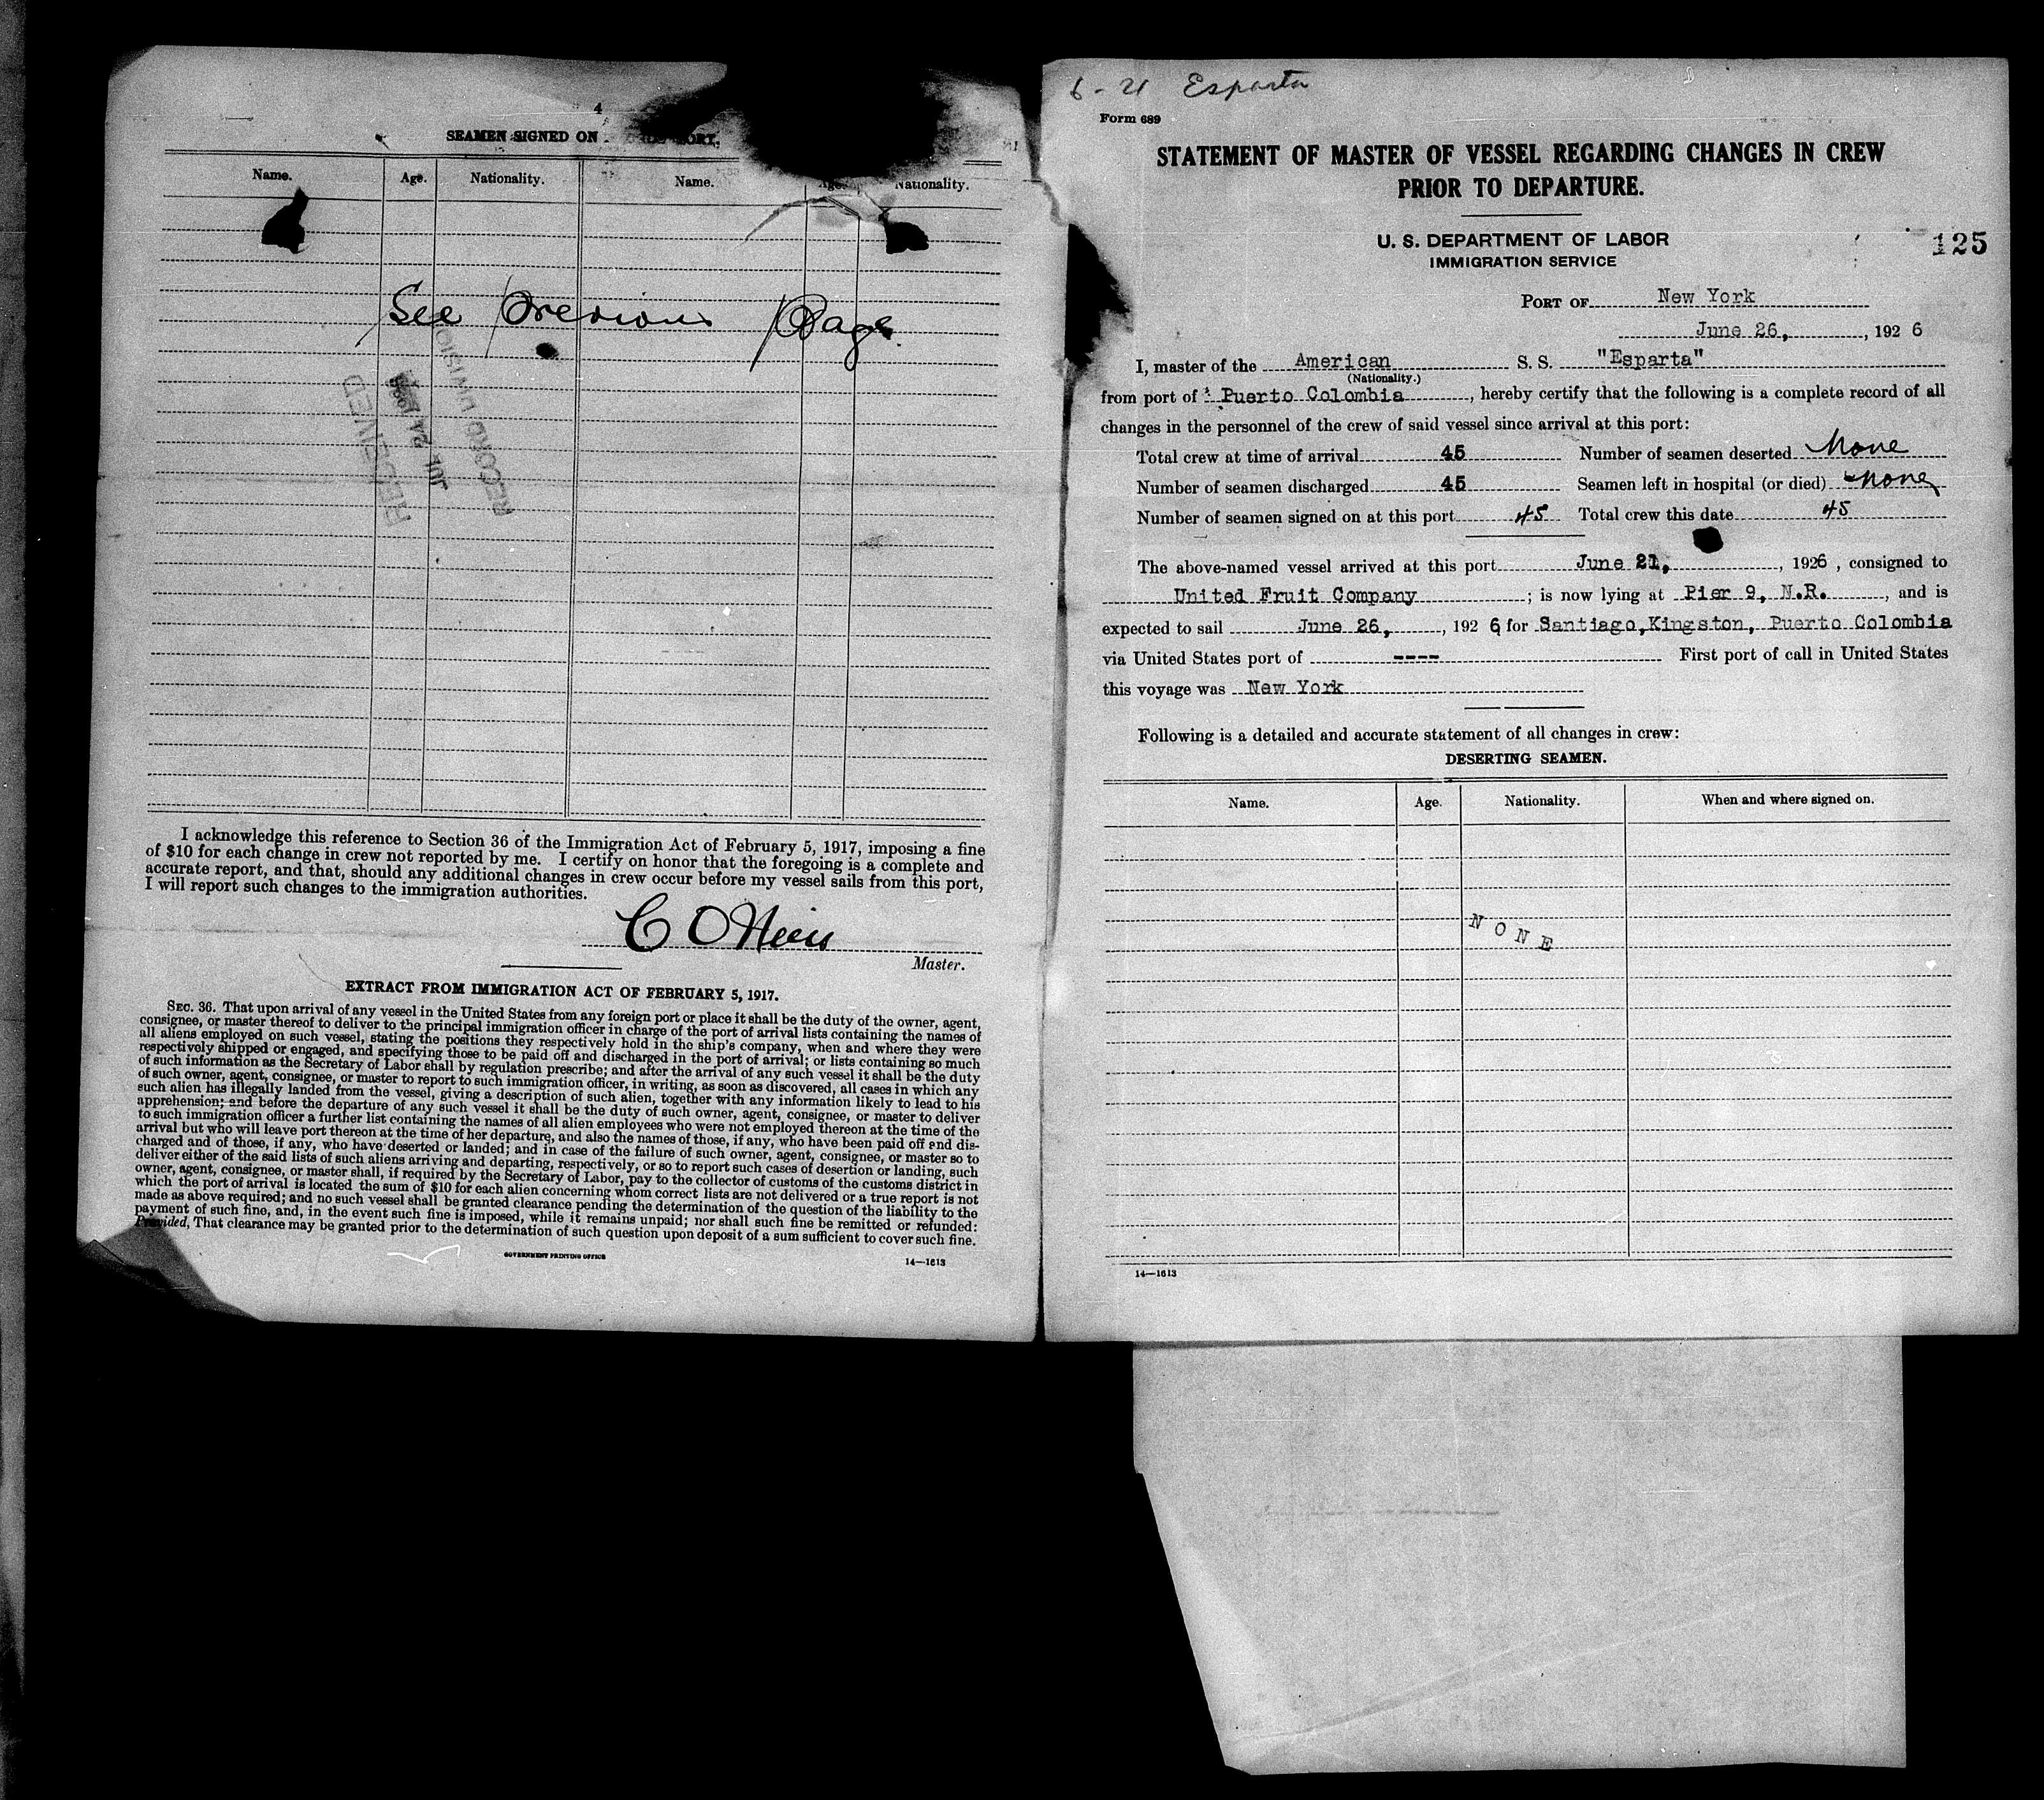 4
SEAMEN SIGNED ON ORT.
Name. Age. Nationality. Name. Age. Nationality.
See Previous Page.
RECEIVED
JUL
RECORD DIVISIO
I acknowledge this reference to Section 36 of the Immigration Act of February 5, 1917, imposing a fine
of $10 for each change in crew not reported by me. I certify on honor that the foregoing is a complete and
accurate report, and that, should any additional changes in crew occur before my vessel sails from this port,
I will report such changes to the immigration authorities.
C O
Master.
EXTRACT FROM IMMIGRATION ACT OF FEBRUARY 5, 1917.
SEC. 36. That upon arrival of any vessel in the United States from any foreign port or place it shall be the duty of the owner, agent,
consignee, or master thereof to deliver to the principal immigration officer in charge of the port of arrival lists containing the names of
all aliens employed on such vessel, stating the positions they respectively hold in the ship's company, when and where they were
respectively shipped or engaged, and specifying those to be paid off and discharged in the port of arrival; or lists containing so much
of such information as the Secretary of Labor shall by regulation prescribe; and after the arrival of any such vessel it shall be the duty
of such owner, agent, consignee, or master to report to such immigration officer, in writing, as soon as discovered, all cases in which any
such alien has illegally landed from the vessel, giving a description of such alien, together with any information likely to lead to his
apprehension; and before the departure of any such vessel it shall be the duty of such owner, agent, consignee, or master to deliver
to such immigration officer a further list containing the names of all alien employees who were not employed thereon at the time of the
arrival but who will leave port thereon at the time of her departure, and also the names of those, if any, who have been paid off and dis-
charged and of those, if any, who have deserted or landed; and in case of the failure of such owner, agent, consignee, or master so to
deliver either of the said lists of such aliens arriving and departing, respectively, or so to report such cases of desertion or landing, such
owner, agent, consignee, or master shall, if required by the Secretary of Labor, pay to the collector of customs of the customs district in
which the port of arrival is located the sum of $10 for each alien concerning whom correct lists are not delivered or a true report is not
made as above required; and no such vessel shall be granted clearance pending the determination of the question of the liability to the
payment of such fine, and, in the event such fine is imposed, while it remains unpaid; nor shall such fine be remitted or refunded:
Provided, That clearance may be granted prior to the determination of such question upon deposit of a sum sufficient to cover such fine.
GOVERNMENT PRINTING OFFICE 14—1613
6 - 21 Esparta
Form 689
STATEMENT OF MASTER OF VESSEL REGARDING CHANGES IN CREW
PRIOR TO DEPARTURE.
U. S. DEPARTMENT OF LABOR
IMMIGRATION SERVICE
125
PORT OF New York
June 26, , 192 6
I, master of the American S. S. "Esparta"
(Nationality.)
from port of Puerto Colombia , hereby certify that the following is a complete record of all
changes in the personnel of the crew of said vessel since arrival at this port:
Total crew at time of arrival 45 Number of seamen deserted None
Number of seamen discharged 45 Seamen left in hospital (or died) None
Number of seamen signed on at this port 45 Total crew this date 45
The above-named vessel arrived at this port June 21, , 1926 , consigned to
United Fruit Company ; is now lying at Pier 9, N.R. , and is
expected to sail June 26, , 192 6 for Santiago,Kingston, Puerto Colombia
via United States port of ---- First port of call in United States
this voyage was New York
Following is a detailed and accurate statement of all changes in crew:
DESERTING SEAMEN.
Name. Age. Nationality. When and where signed on.
N O N E
14—1613